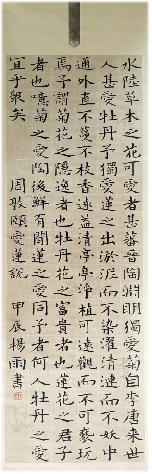 水陸草木之花可愛者甚蕃晉陶淵明獨愛菊自李唐來世
人甚愛牡丹予獨愛蓮之出淤泥而不染濯清漣而不妖中
通外直不蔓不枝香遠益清亭亭淨植可遠觀而不可褻玩
焉予謂菊花之隱逸者也牡丹花之富貴者也蓮花之君子
者也噫菊之愛陶後鮮有聞蓮之愛同予者何人牡丹之愛
宜乎衆矣 周敦頤愛蓮說 甲辰楊雨書